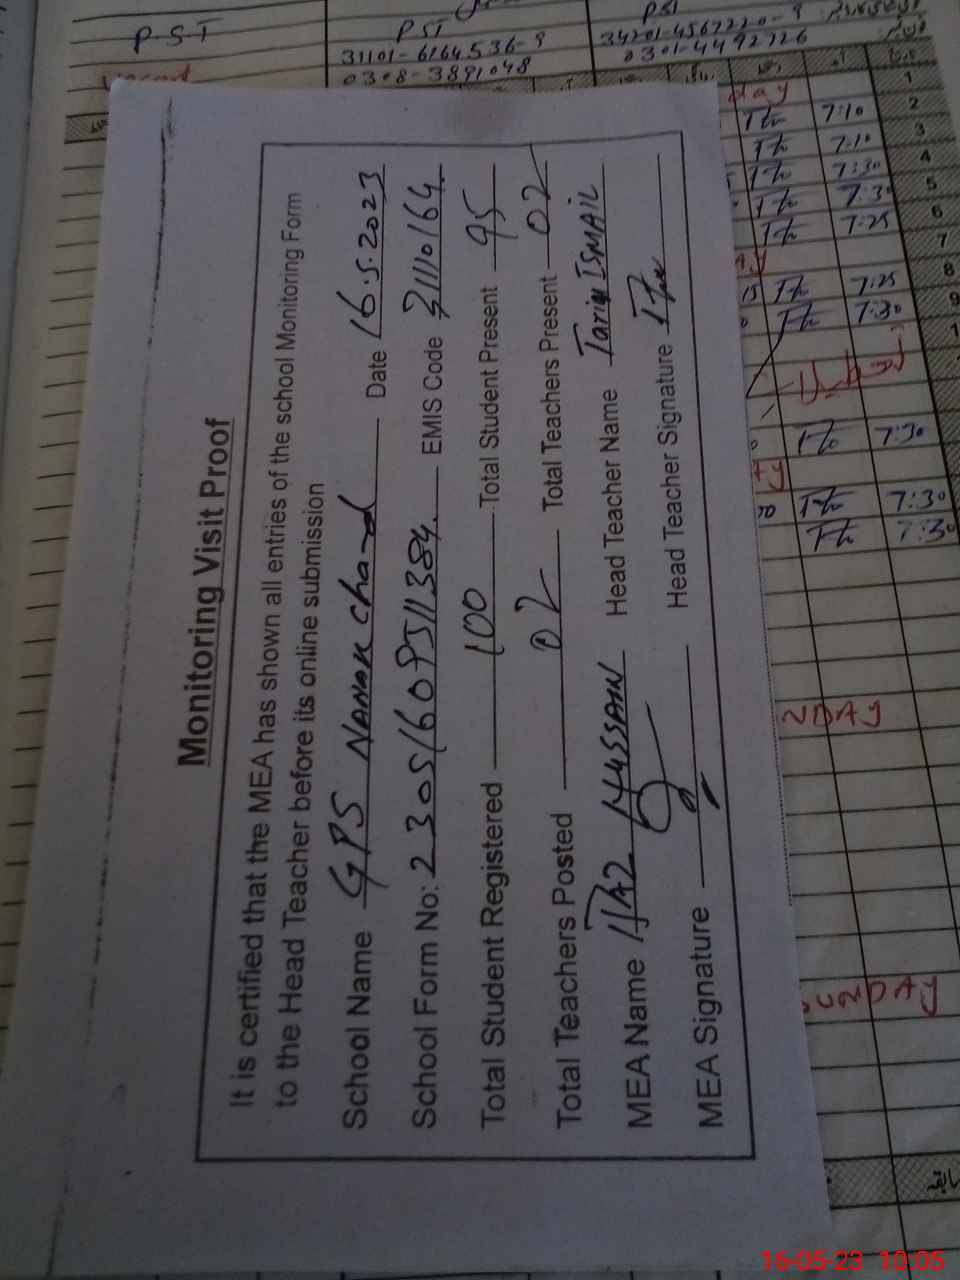 Monitoring Visit Proof
It is certified that the MEA has shown all entries of the school Monitoring Form
to the Head Teacher before its online submission
School Name GPS NANAK Chand Date 16.5.2023
School Form No: 2305160P511384 EMIS Code 31110164
Total Student Registered 100 Total Student Present 95
Total Teachers Posted 02 Total Teachers Present 02
MEA Name IJAZ HUSSAIN Head Teacher Name Tariq ISMAIL
MEA Signature Head Teacher Signature
P.S.T PST PST
31101-6164536-9 34201-4567220-9
0308-3891048 0301-4492726
1
2
7:10
3
7:10
4
7:30
5
7:30
6
7:25
7
8
7:25
9
7:30
7:30
7:30
7:30
NDAY
SUNDAY
16-05-23 10:05